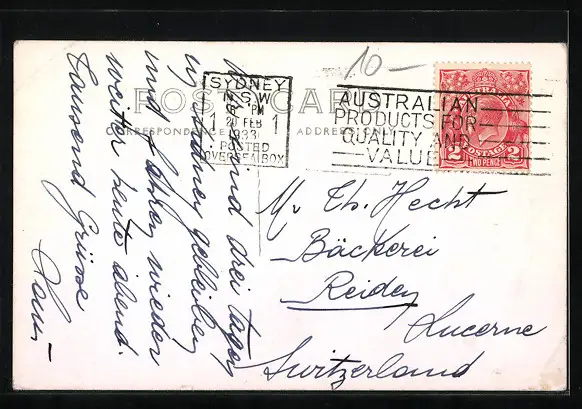 10 —
POST CARD
CORRESPONDENCE
ADDRESS ONLY
SYDNEY
N.S.W.
8 - PM
1 20 FEB 1
1933
POSTED
OVERSEA BOX
AUSTRALIAN
PRODUCTS FOR
QUALITY AND
VALUE
AUSTRALIA
POSTAGE
2 TWO PENCE 2
sind drei Tage
in Sidney geblieben
und fahren wieder
weiter heute abend.
Tausend Grüsse
Hans
Mr Th. Hecht
Bäckerei
Reiden
Lucerne
Switzerland